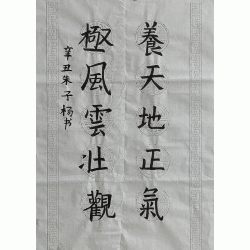 養天地正氣
極風雲壯觀
辛丑朱子楊书